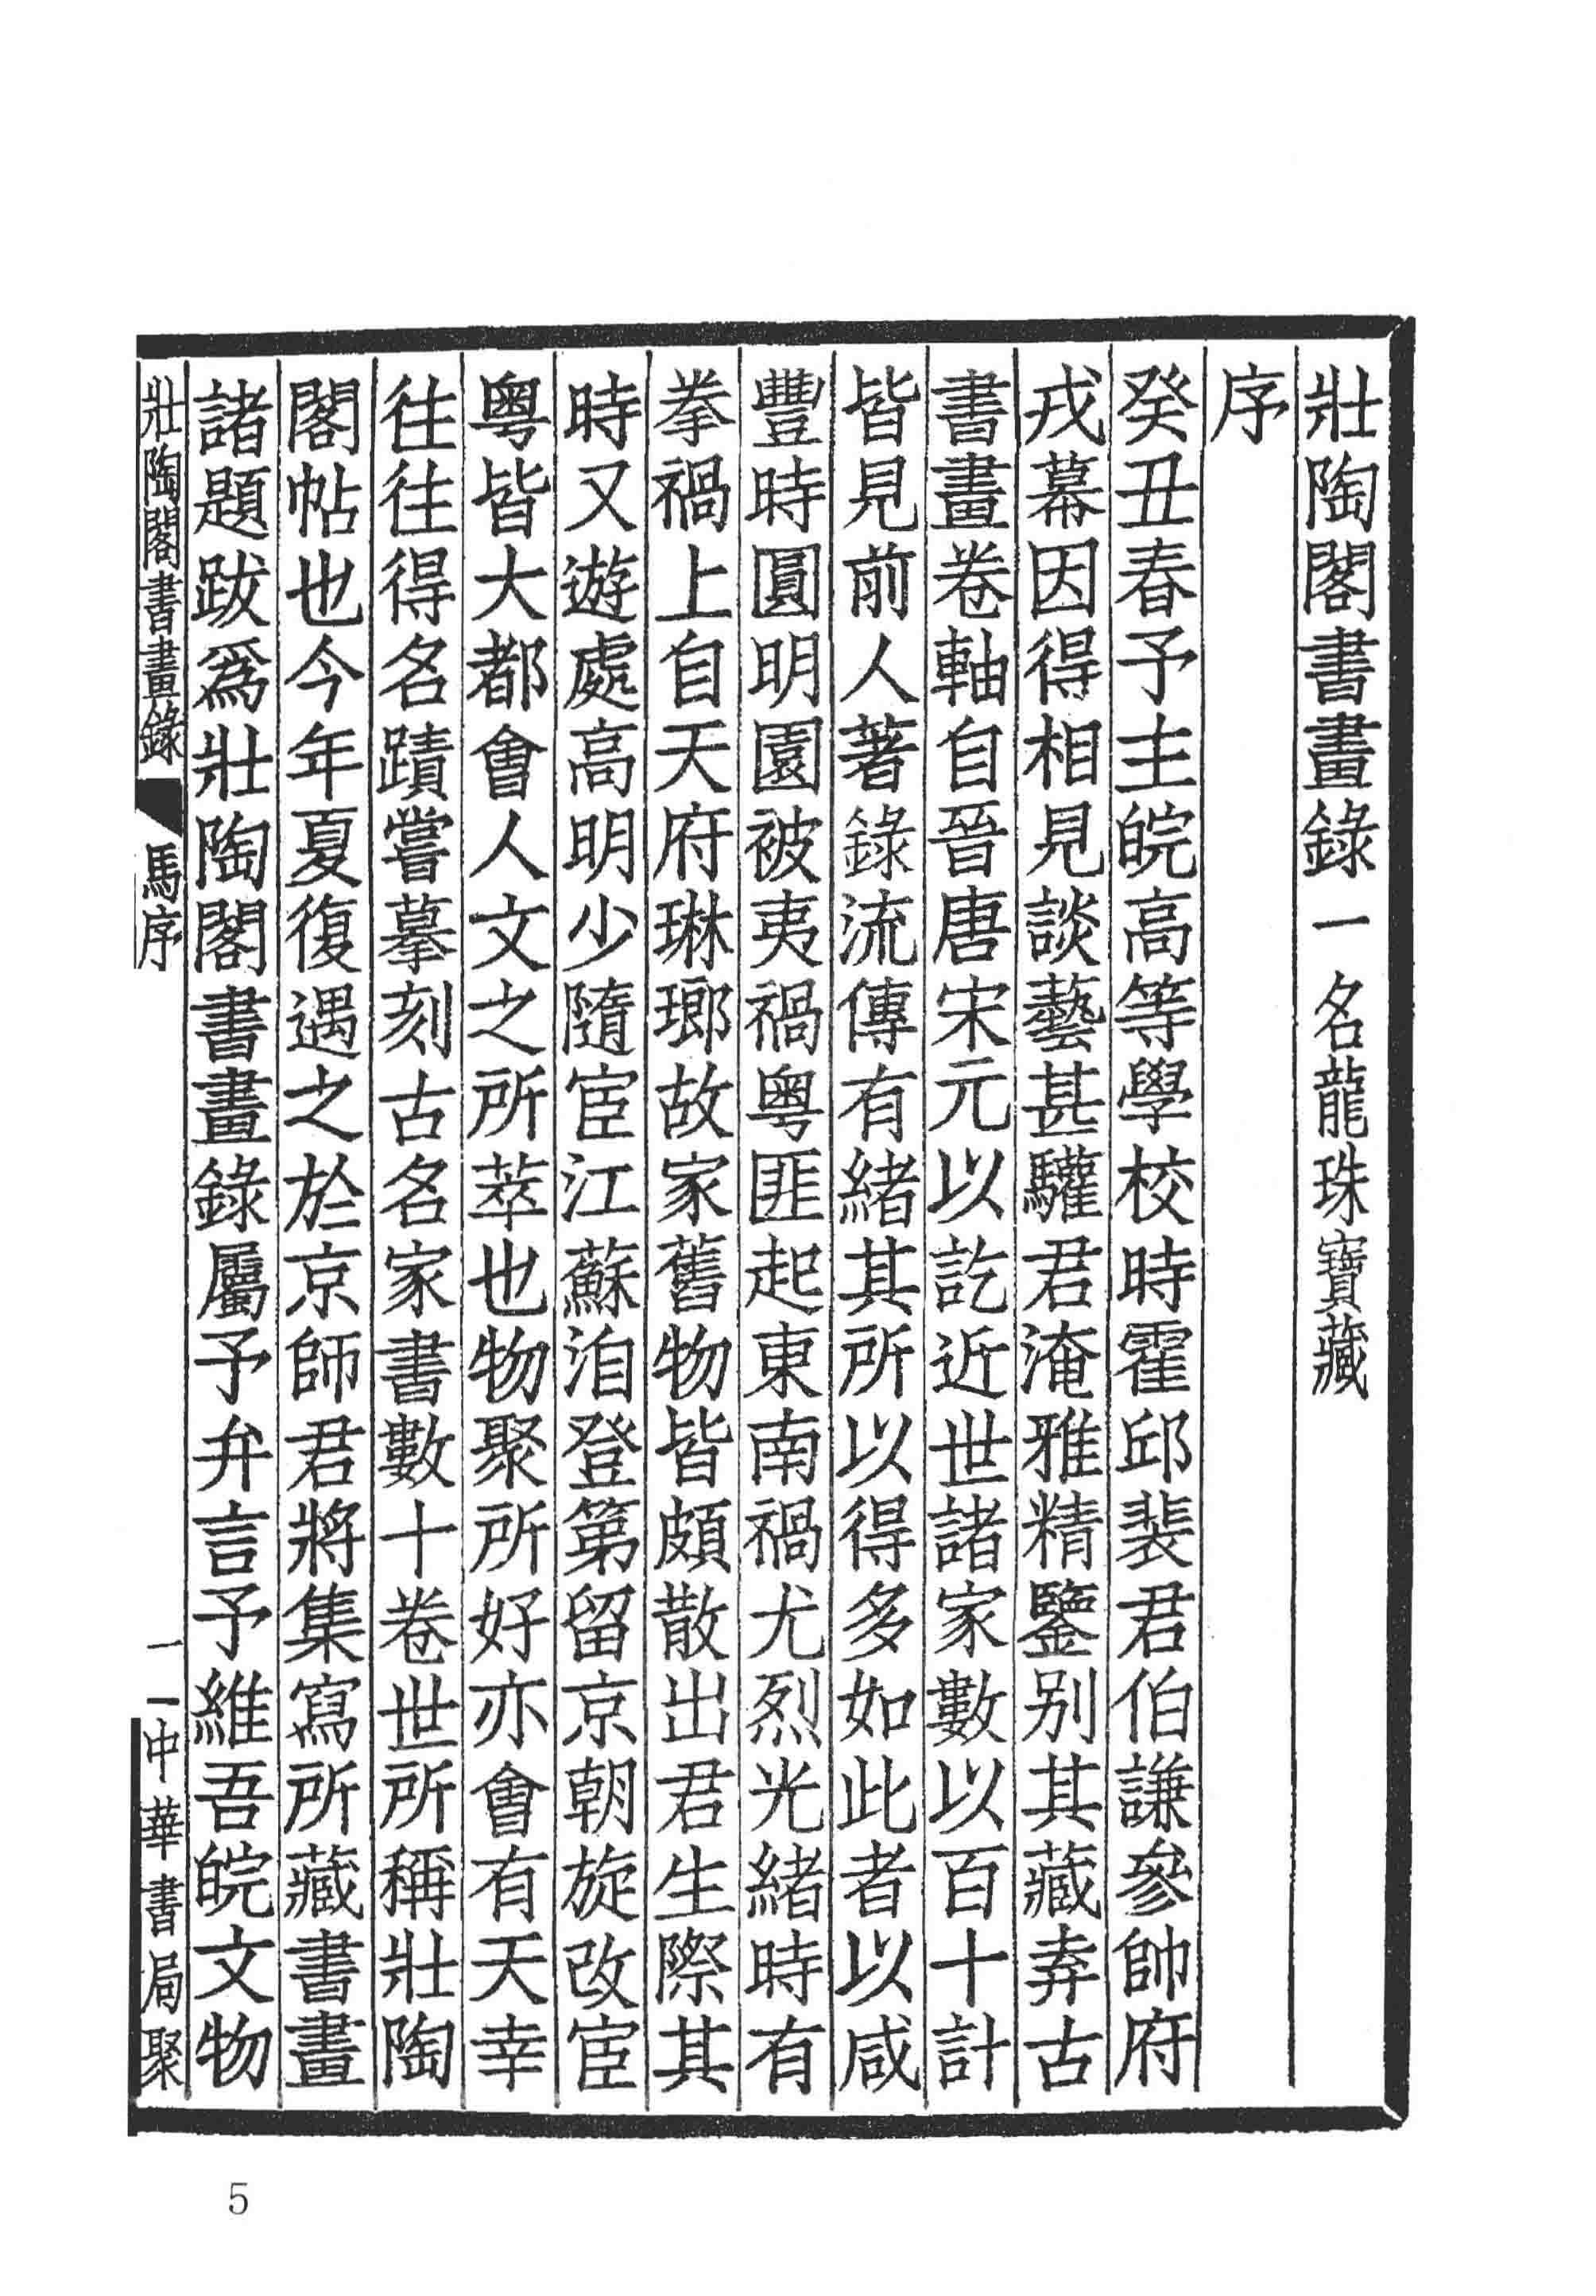 壯陶閣書畫錄一名龍珠寶藏
序
癸丑春予主皖高等學校時霍邱裴君伯謙參帥府
戎幕因得相見談藝甚驩君淹雅精鑒別其藏弆古
書畫卷軸自晉唐宋元以訖近世諸家數以百十計
皆見前人著錄流傳有緒其所以得多如此者以咸
豐時圓明園被夷禍粵匪起東南禍尤烈光緒時有
拳禍上自天府琳瑯故家舊物皆頗散出君生際其
時又遊處高明少隨宦江蘇洎登第留京朝旋改宦
粵皆大都會人文之所萃也物聚所好亦會有天幸
往往得名蹟嘗摹刻古名家書數十卷世所稱壯陶
閣帖也今年夏復遇之於京師君將集寫所藏書畫
諸題跋爲壯陶閣書畫錄屬予弁言予維吾皖文物
壯陶閣書畫錄 馬序 一 中華書局聚
5